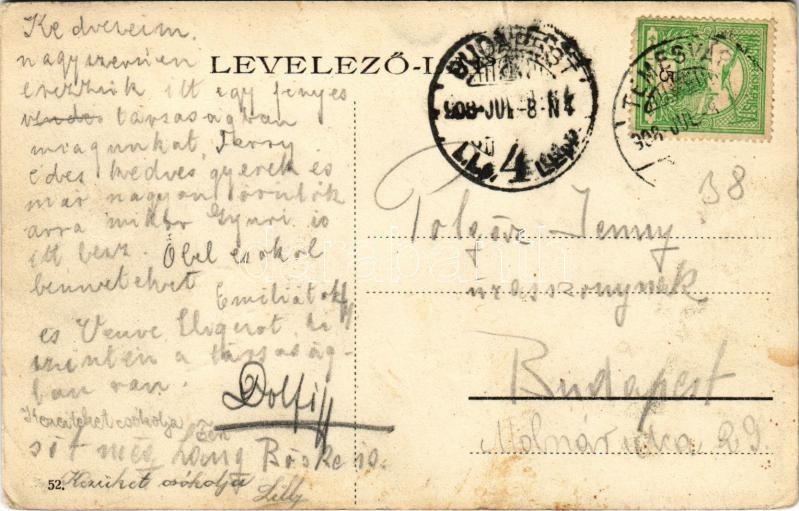 Kedveseim
nagyszerüen
érezzük itt egy fényes
társaságban
magunkat, Terry
édes kedves gyerek és
már nagyon örülök
arra mikor Gyuri is
itt lesz. Ölel csókol
benneteket
Emiliatok
és Veuve Cliquot, ki
szintén a társaság-
ban van.
Dolfi
Kezeiteket csókolja
sőt még Lang Böske is.
Kezüket csókolja
Lilly
52.
LEVELEZŐ-L
BUDAPEST
908-JUL-8-N4
4
TEMESVÁR
908-JUL
38
Jenny
úrasszonynak
Budapest
Molnár utca 29.
darabanth